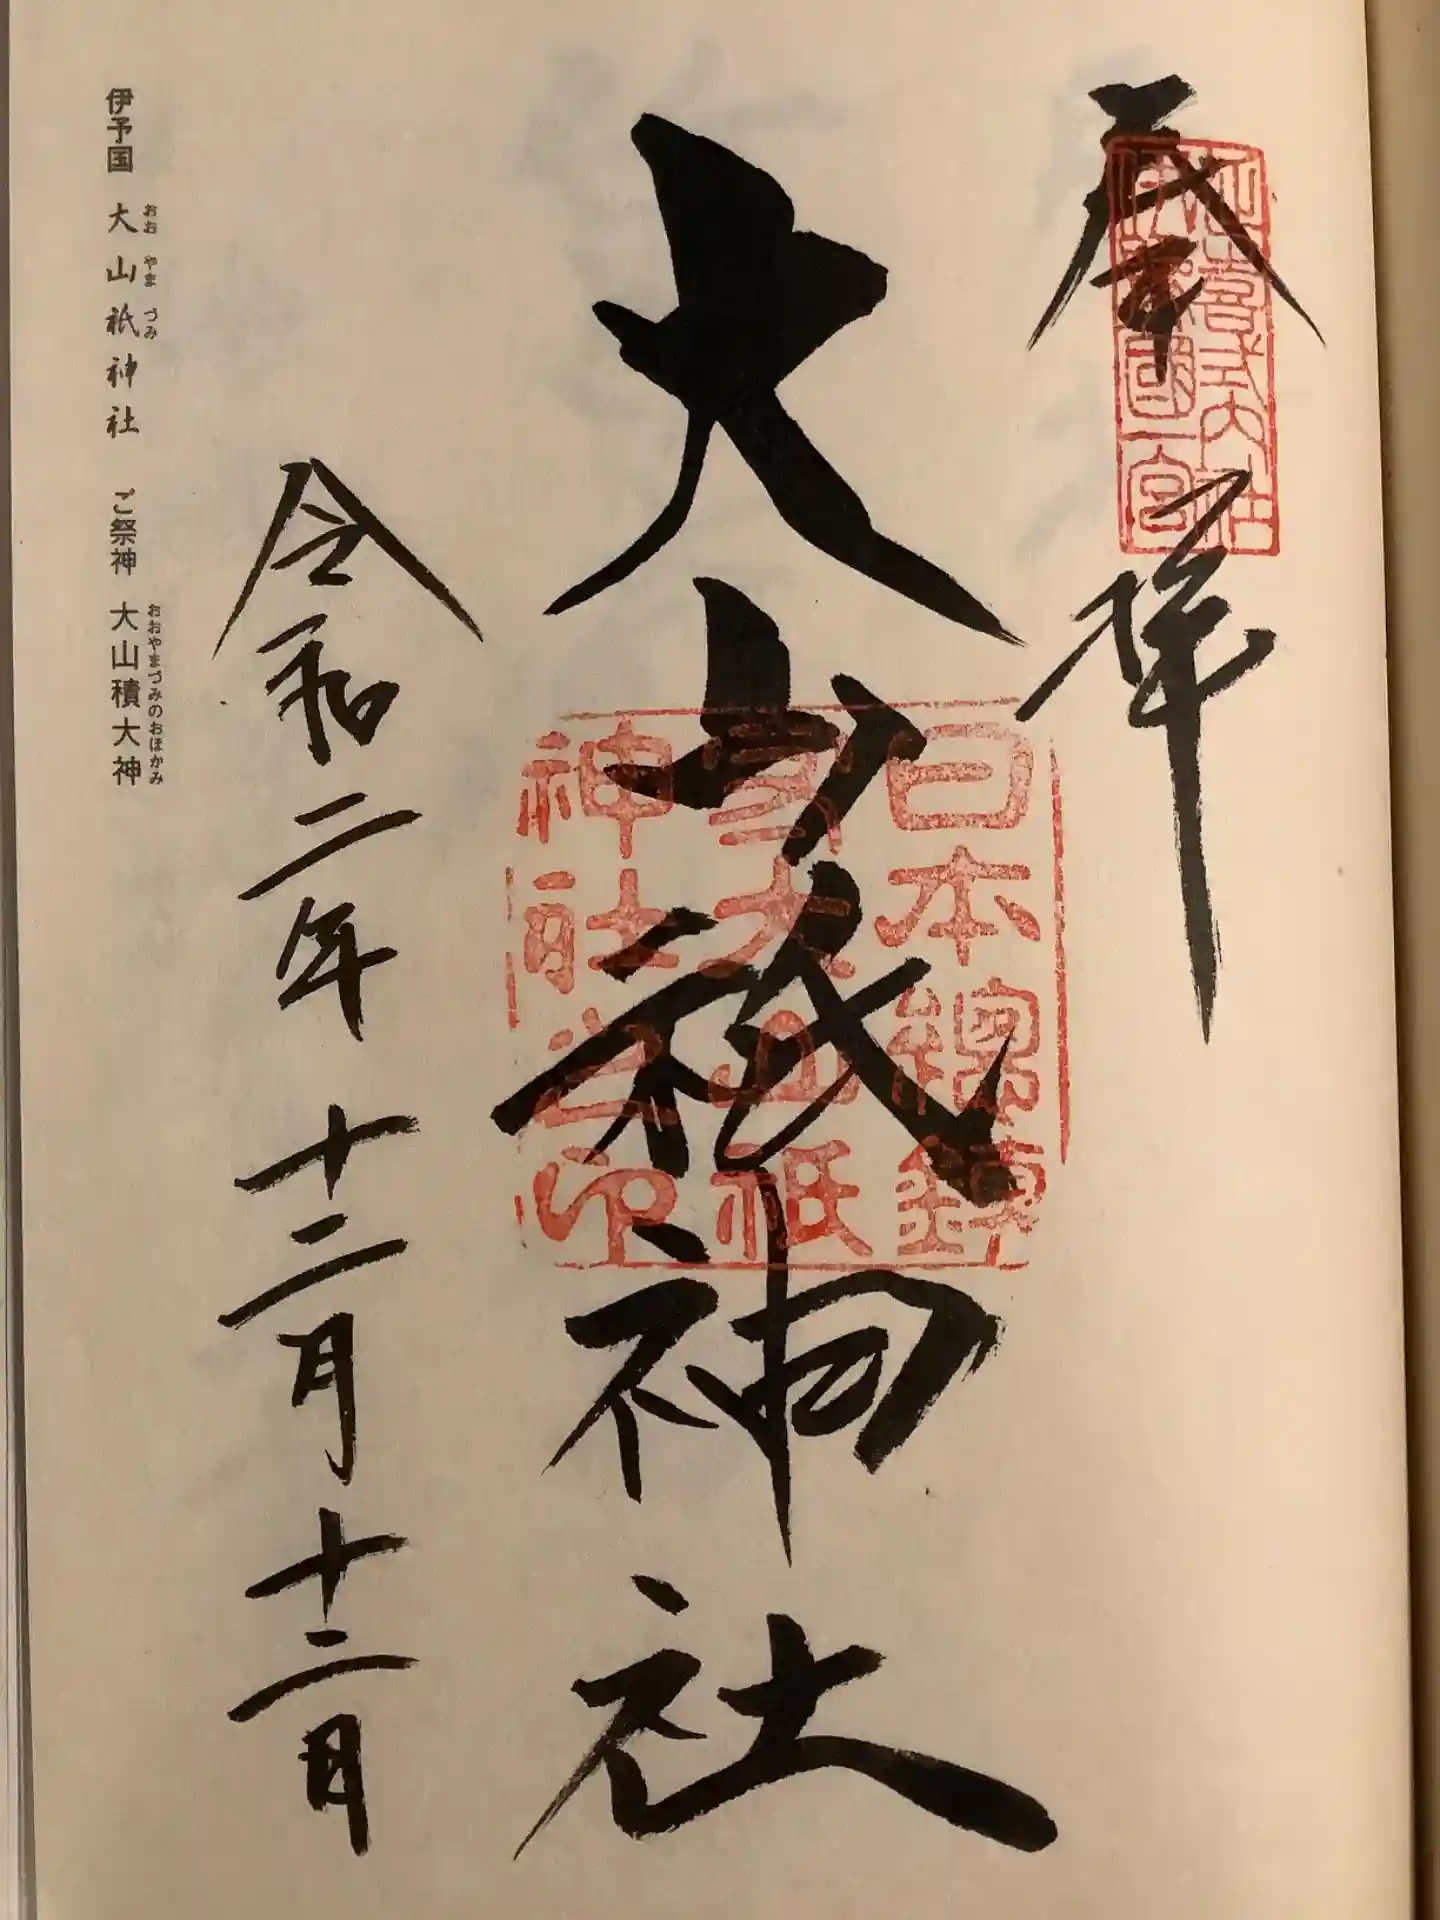 奉拝
延喜式内社
伊豫國一宮
大山祇神社
日本總鎮
守大山祇
神社之印
令和二年十二月十二日
伊予国 大山祇神社 ご祭神 大山積大神
おお やま づみ
おおやまづみのおほかみ